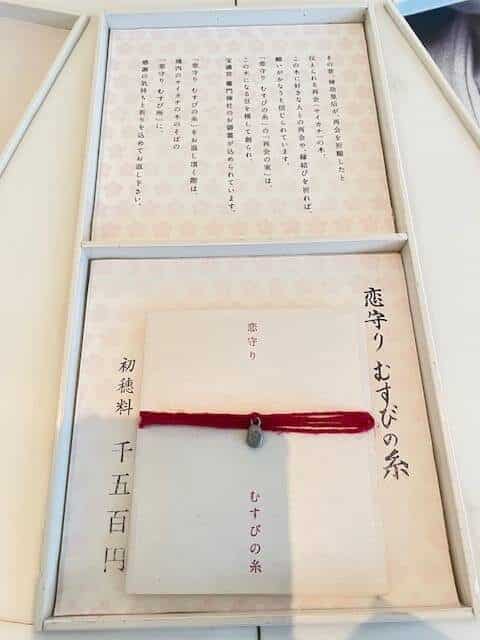 その昔、神功皇后が、再会を祈願したと
伝えられる再会(サイカチ)の木。
この木に好きな人との再会や、縁結びを祈れば、
願いがかなうと信じられています。
「恋守り むすびの糸」の「再会の実」は、
この木になる豆を模して創られ、
宝満宮 竈門神社のお御霊が込められています。
「恋守り むすびの糸」をお返し頂く際は、
境内のサイカチの木のそばの
「恋守り むすび所」に、
感謝の気持ちと祈りを込めてお返し下さい。
恋守り むすびの糸
恋守り
むすびの糸
初穂料 千五百円